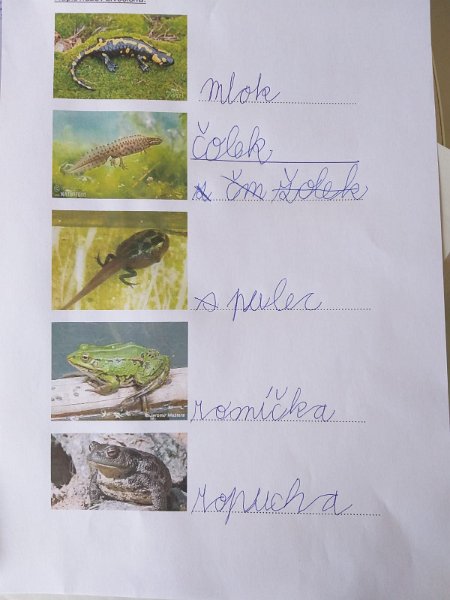 mlok
čolek
s čm žolek
s pulec
rosnička
ropucha